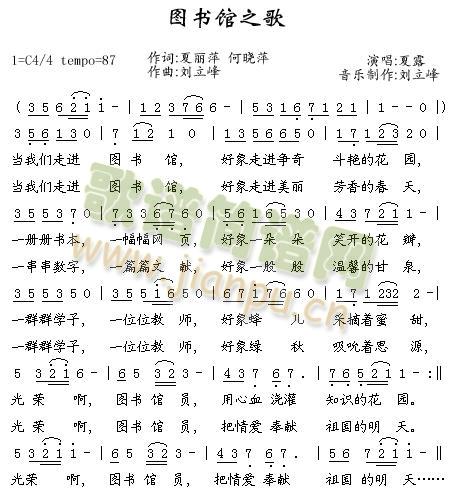 图书馆之歌
1=C4/4 tempo=87 作词:夏丽萍 何晓萍 演唱:夏露
作曲:刘立峰 音乐制作:刘立峰
( 3 5 6 2 1 1 - | 1 2 3 7 6 6 - | 5 3 1 6 7 1 2 1 | 1 - - 0 | )
3 5 6 1 3 0 | 7 1 2 1 0 | 3 5 3 1 3 0 | 1 7 1 2 3 2 0 |
当我们走进 图 书 馆, 好象走进争奇 斗艳的花 园,
当我们走进 图 书 馆, 好象走进美丽 芳香的春 天,
3 5 5 3 7 0 | 7 3 3 6 7 6 0 | 6 2 1 6 5 3 0 | 4 3 7 2 1 1 - |
一册册书本, 一幅幅网 页, 好象一朵 朵 笑开的花 瓣,
一串串数字, 一篇篇文 献, 好象一股 股 温馨的甘 泉,
3 5 5 3 5 0 | 3 5 5 3 1 5 0 | 6 7 1 7 6 6 0 | 1 7 1 232 2 0 |
一群群学子, 一位位教 师, 好象蜂 儿 采摘着蜜 甜,
一群群学子, 一位位教 师, 好象绿 秋 吸吮着思 源,
5 3 2 1 6 - | 5 3 2 2 3 - | 2 3 4 7 6 7 - | 7 5 7 2 1 1 - :||
光 荣 啊, 图 书 馆 员, 用心血 浇灌 知识的花 园。
光 荣 啊, 图 书 馆 员, 把情爱 奉献 祖国的明 天。
5 3 2 1 6 - | 5 3 2 2 3 - | 2 3 4 7 6 7 - | 4 3 7 2 1 1 - ||
光 荣 啊, 图 书 馆 员, 把情爱 奉献 祖国的明 天……
歌谱简谱网
www.jianpu.cn